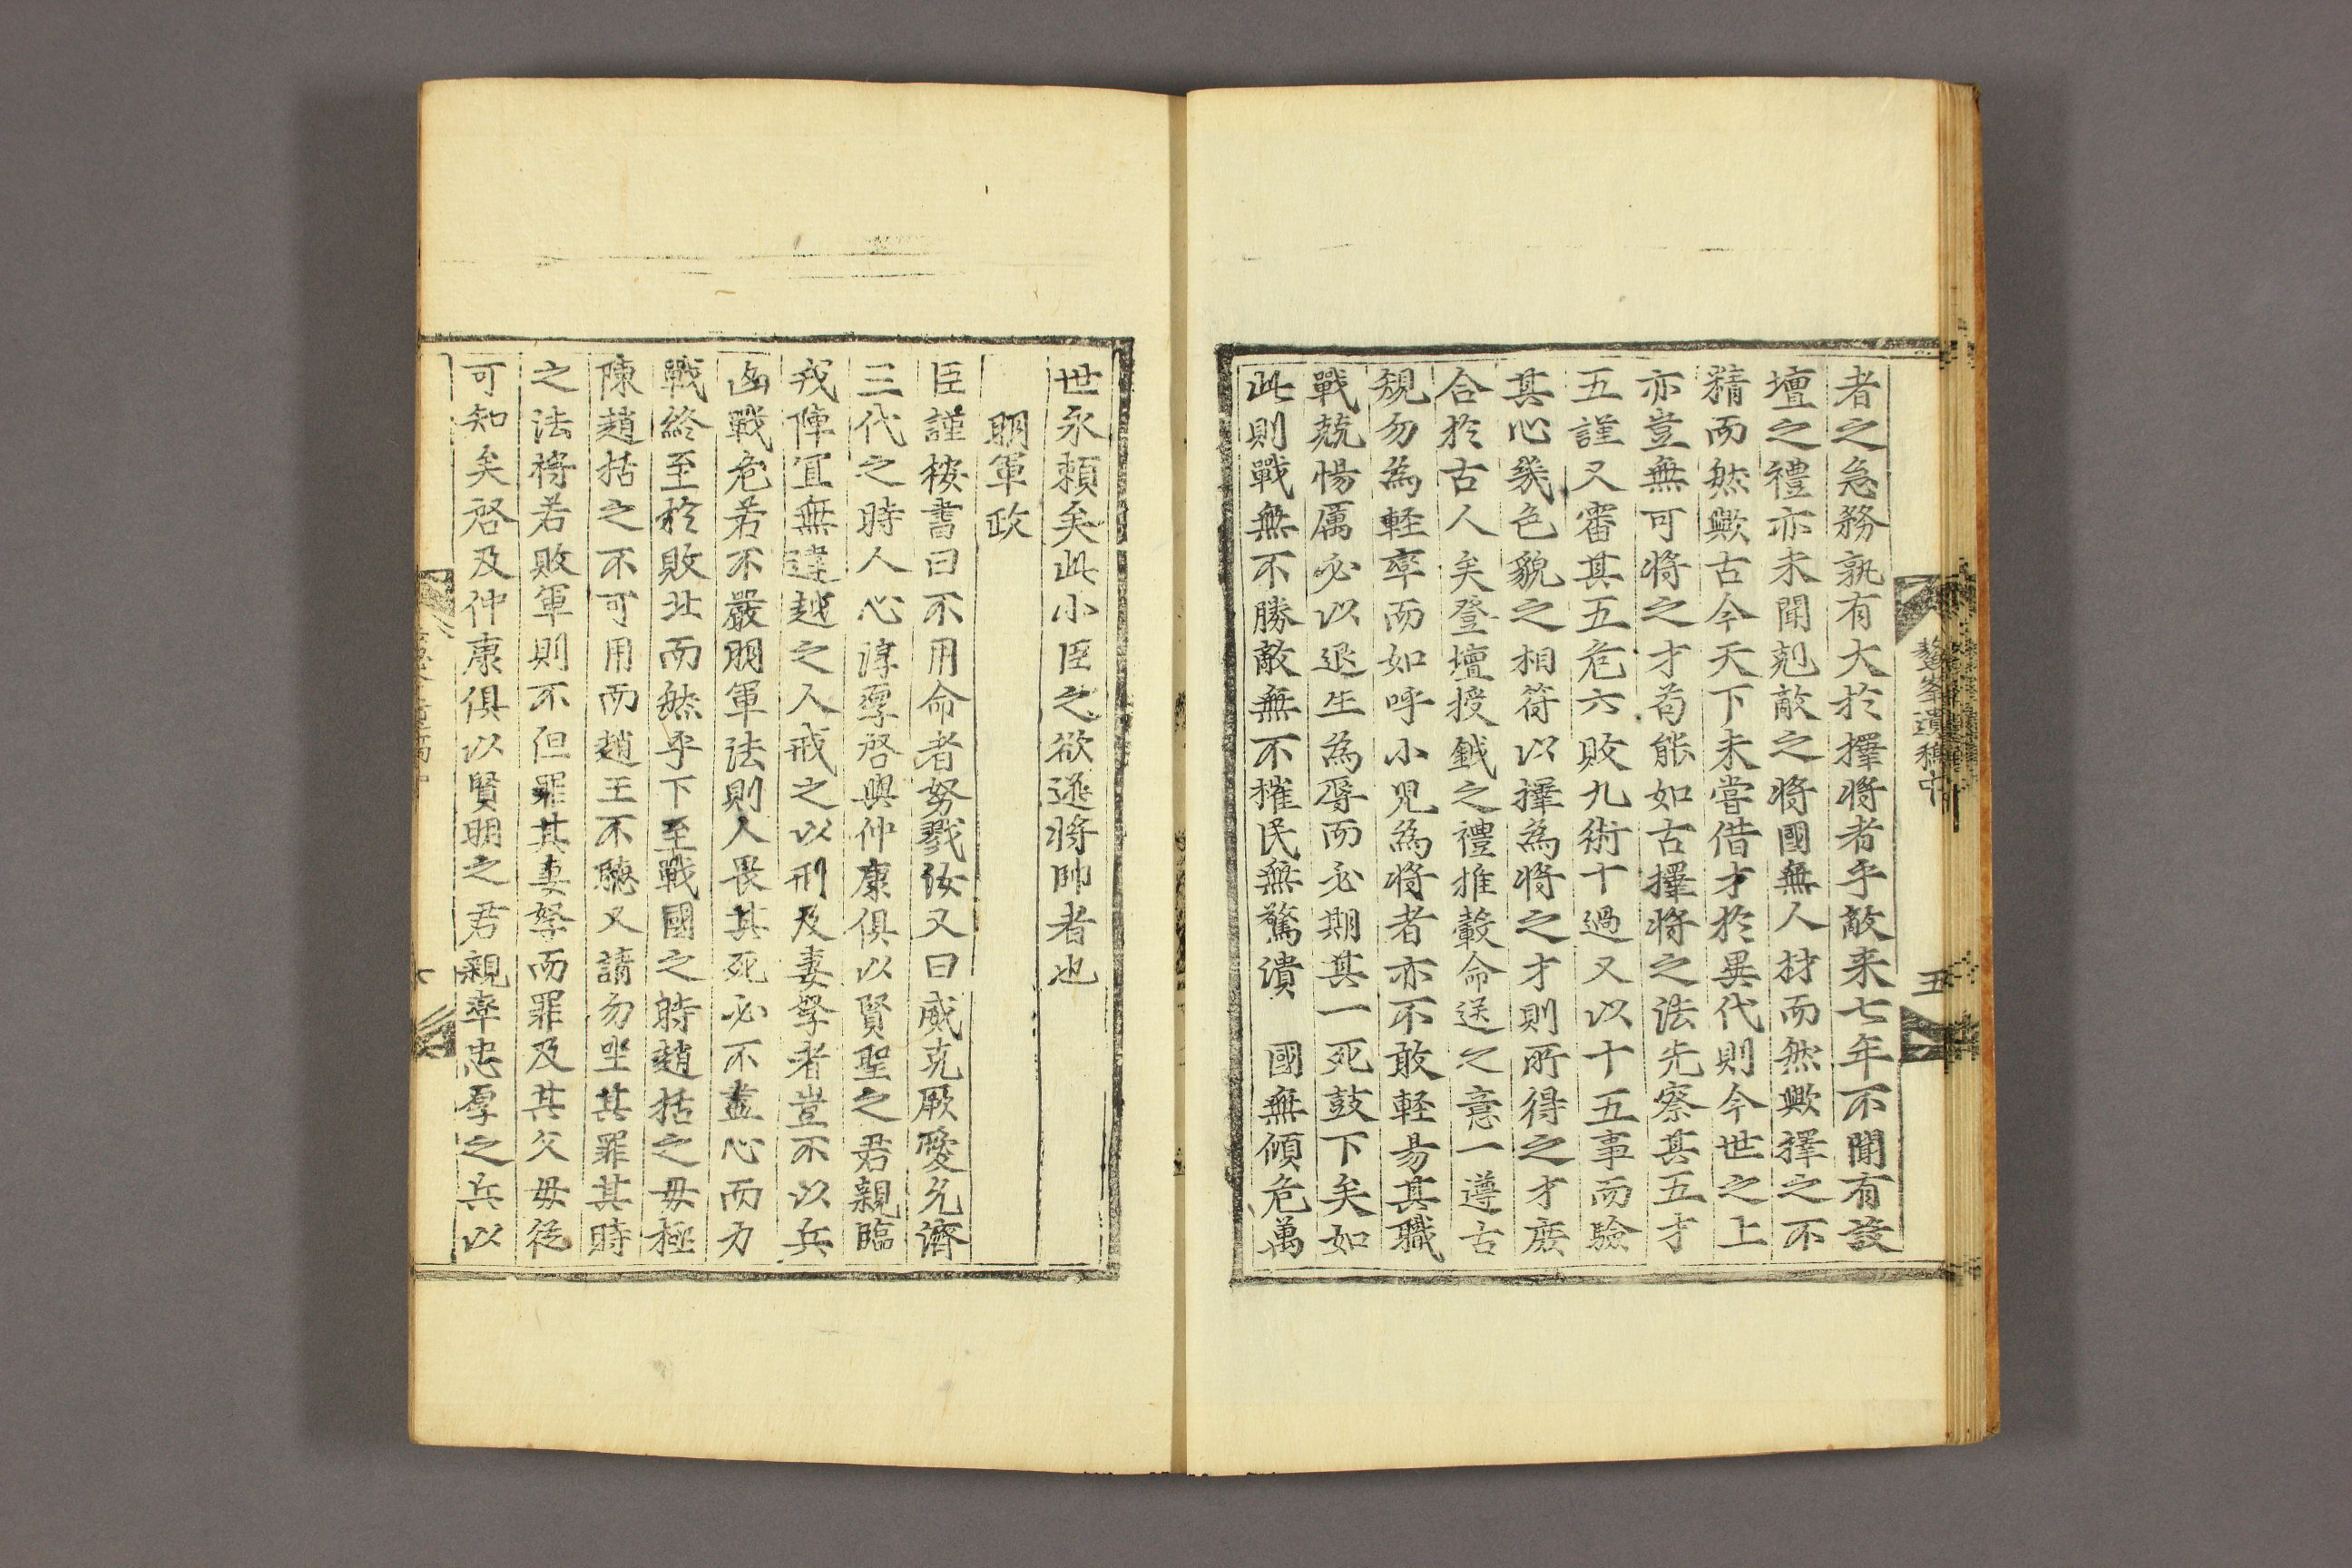 鰲峯遺稿中
五
者之急務孰有大於擇將者乎敵来七年不聞有設
壇之禮亦未聞剋敵之將國無人材而然歟擇之不
精而然歟古今天下未嘗借才於異代則今世之上
亦豈無可將之才苟能如古擇將之法先察其五才
五謹又審其五危六敗九術十過又以十五事而驗
其心幾色貌之相符以擇為將之才則所得之才庶
合於古人矣登壇授鉞之禮推轂命送之意一遵古
規勿為軽率而如呼小児為將者亦不敢軽易其職
戰兢惕厲必以退生為辱而必期其一死鼓下矣如
此則戰無不勝敵無不摧民無驚潰　國無傾危萬
世永頼矣此小臣之欲逊將帥者也
明軍政
臣謹按書曰不用命者努戮汝又曰威克厥愛允濟
三代之時人心淳厚啓與仲康俱以賢聖之君親臨
戎陣冝無違越之人戒之以刑及妻孥者豈不以兵
凶戰危若不嚴明軍法則人畏其死必不盡心而力
戰終至於敗北而然乎下至戰國之時趙括之毋極
陳趙括之不可用而趙王不聽又請勿坐其罪其時
之法將若敗軍則不但罪其妻孥而罪及其父毋従
可知矣啓及仲康俱以賢明之君親率忠厚之兵以